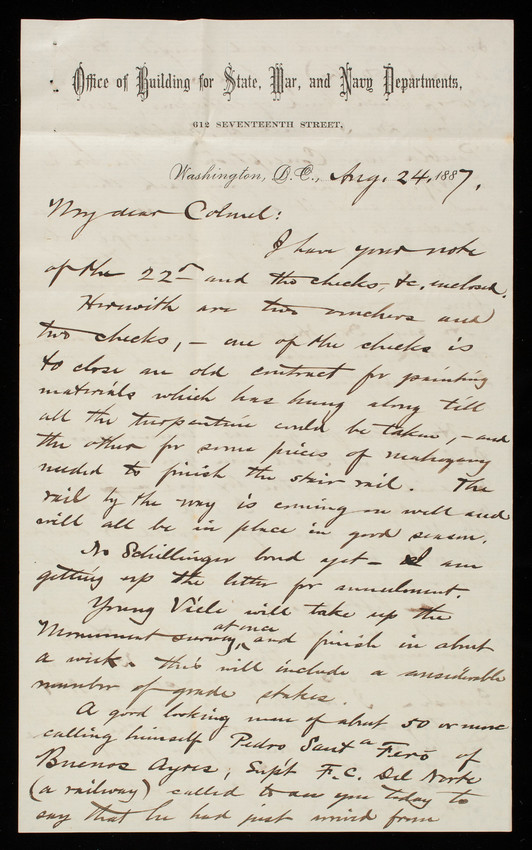 Office of Building for State, War, and Navy Departments,
612 SEVENTEENTH STREET.
Washington, D.C., Aug. 24, 1887.
My dear Colonel:
I have your note
of the 22nd and the checks, &c, enclosed.
Herewith are two vouchers and
two checks, – one of the checks is
to close an old contract for painting
materials which has hung along till
all the turpentine could be taken, – and
the other for some pieces of mahogany
needed to finish the stair rail. The
rail by the way is coming on well and
will all be in place in good season.
No Schillinger bond yet – I am
getting up the letter for annulment.
Young Viele will take up the
Monument survey at once and finish in about
a week. this will include a considerable
number of grade stakes.
A good looking man of about 50 or more
calling himself Pedro Santa Feró of
Buenos Ayres, Supt F.C. Del Norte
(a railway) called to see you today to
say that he had just arrived from